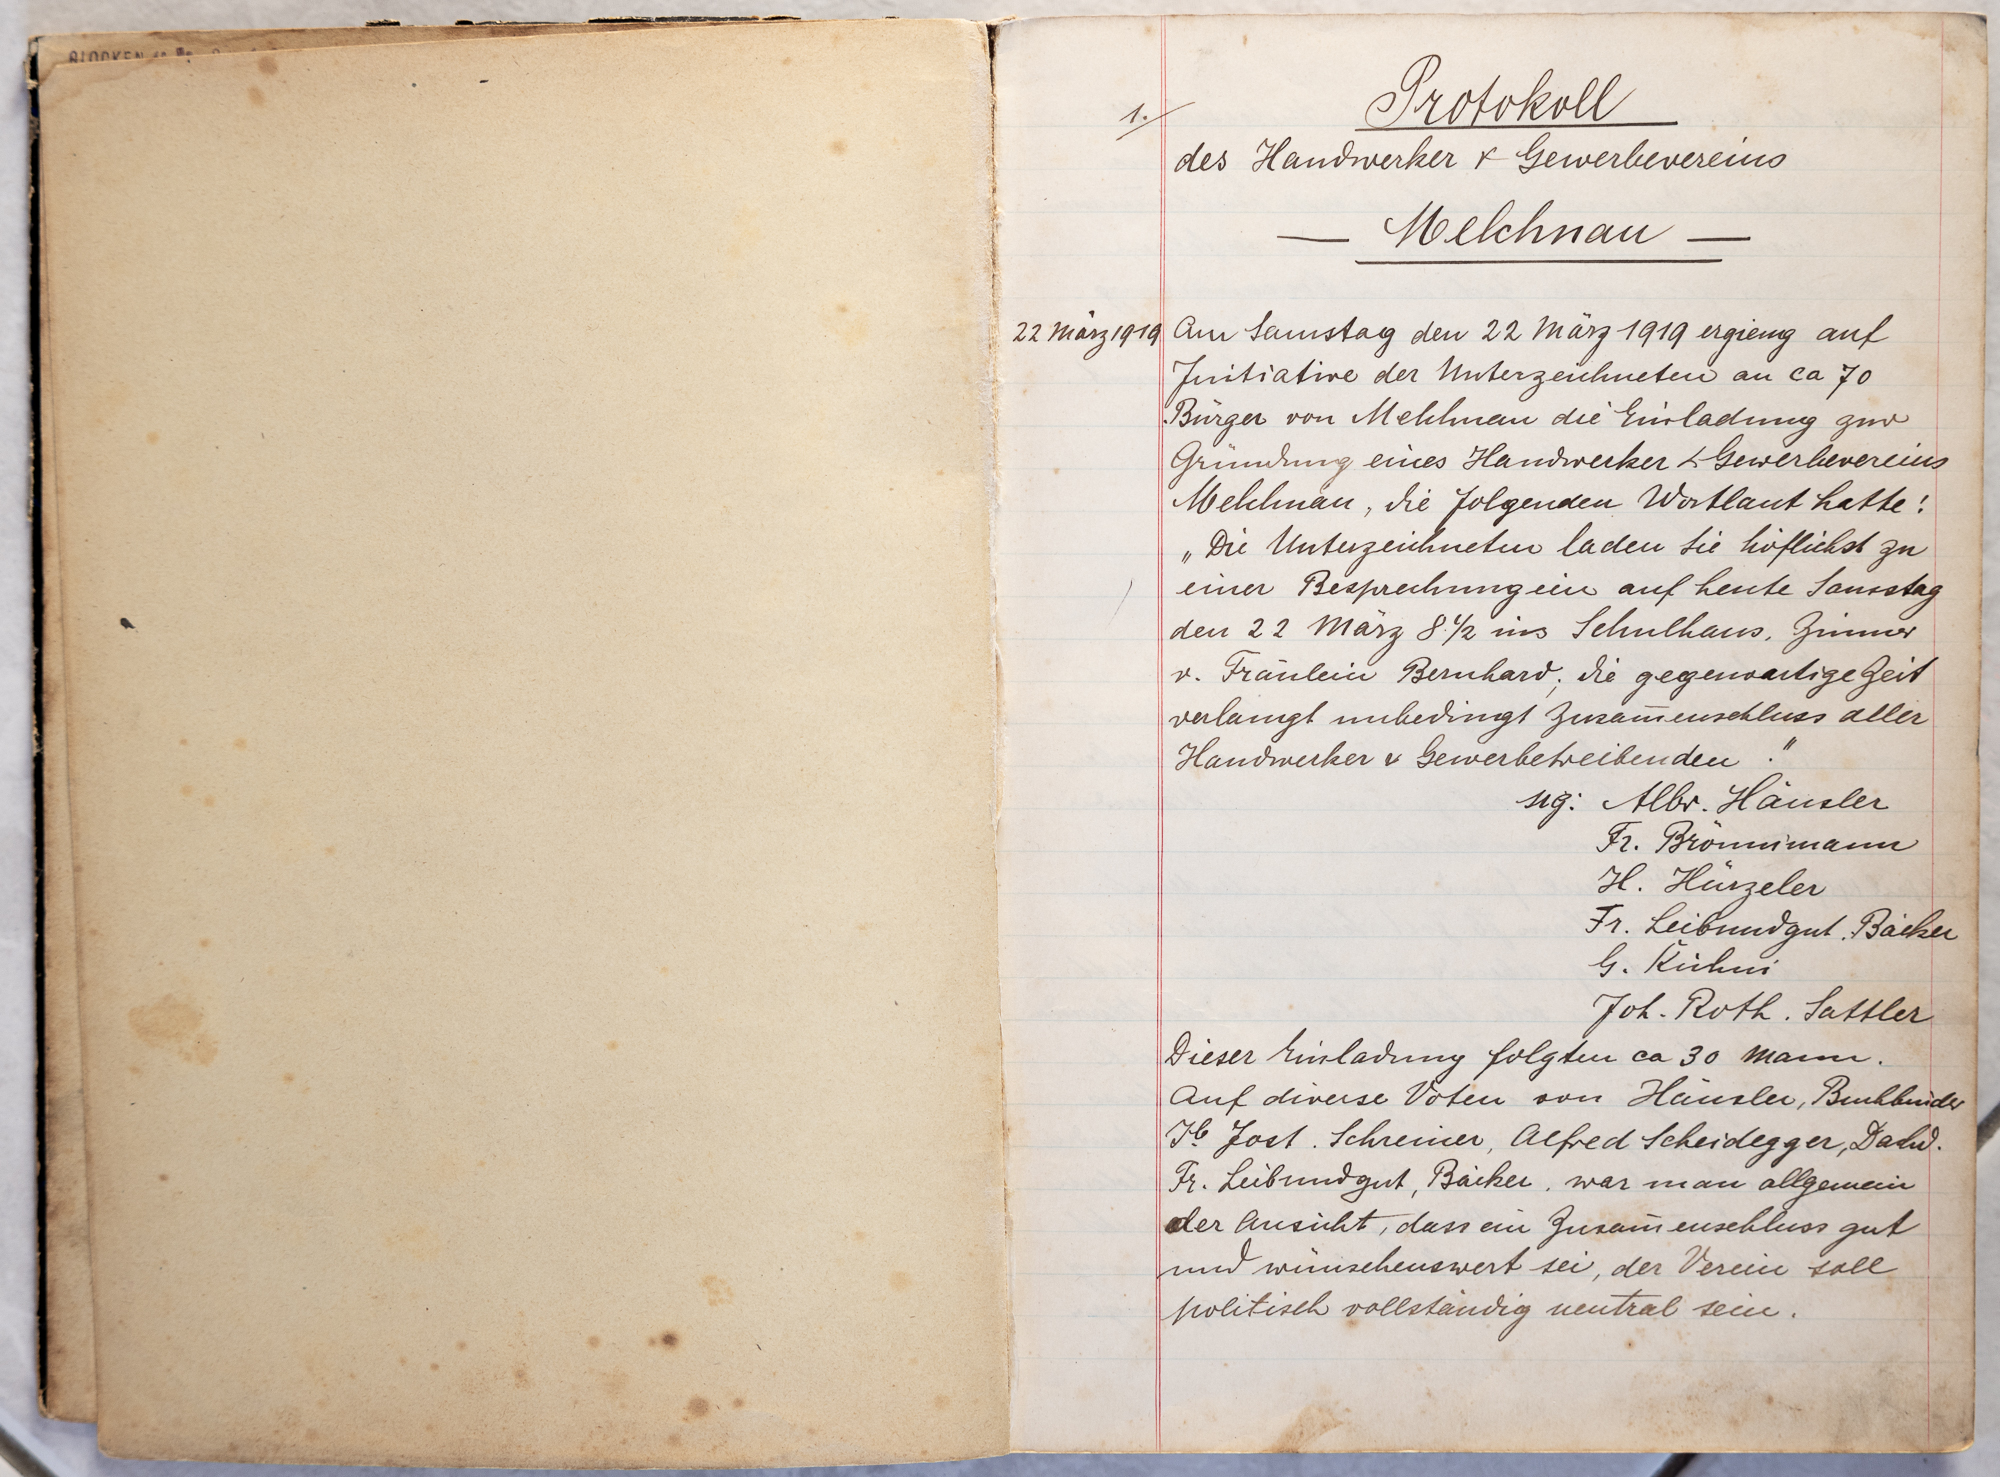 1.
Protokoll
des Handwerker & Gewerbevereins
— Melchnau —
22 März 1919
Am Samstag den 22 März 1919 ergieng auf
Initiative der Unterzeichneten an ca 70
Bürger von Melchnau die Einladung zur
Gründung eines Handwerker & Gewerbevereins
Melchnau, die folgenden Wortlaut hatte:
„Die Unterzeichneten laden Sie höflichst zu
einer Besprechung ein auf heute Samstag
den 22 März 8.½ ins Schulhaus, Zimmer
v. Fräulein Bernhard; die gegenwärtige Zeit
verlangt unbedingt Zusam̄enschluss aller
Handwerker & Gewerbetreibenden."
sig: Albr. Häusler
Fr. Brönnimann
H. Hürzeler
Fr. Leibundgut. Bäcker
G. Kühni
Joh. Roth. Sattler
Dieser Einladung folgten ca 30 Mann.
Auf diverse Voten von Häusler, Buchbinder
Jb Jost. Schreiner, Alfred Scheidegger, Dachd.
Fr. Leibundgut, Bäcker. war man allgemein
der Ansicht, dass ein Zusam̄enschluss gut
und wünschenswert sei, der Verein soll
politisch vollständig neutral sein.